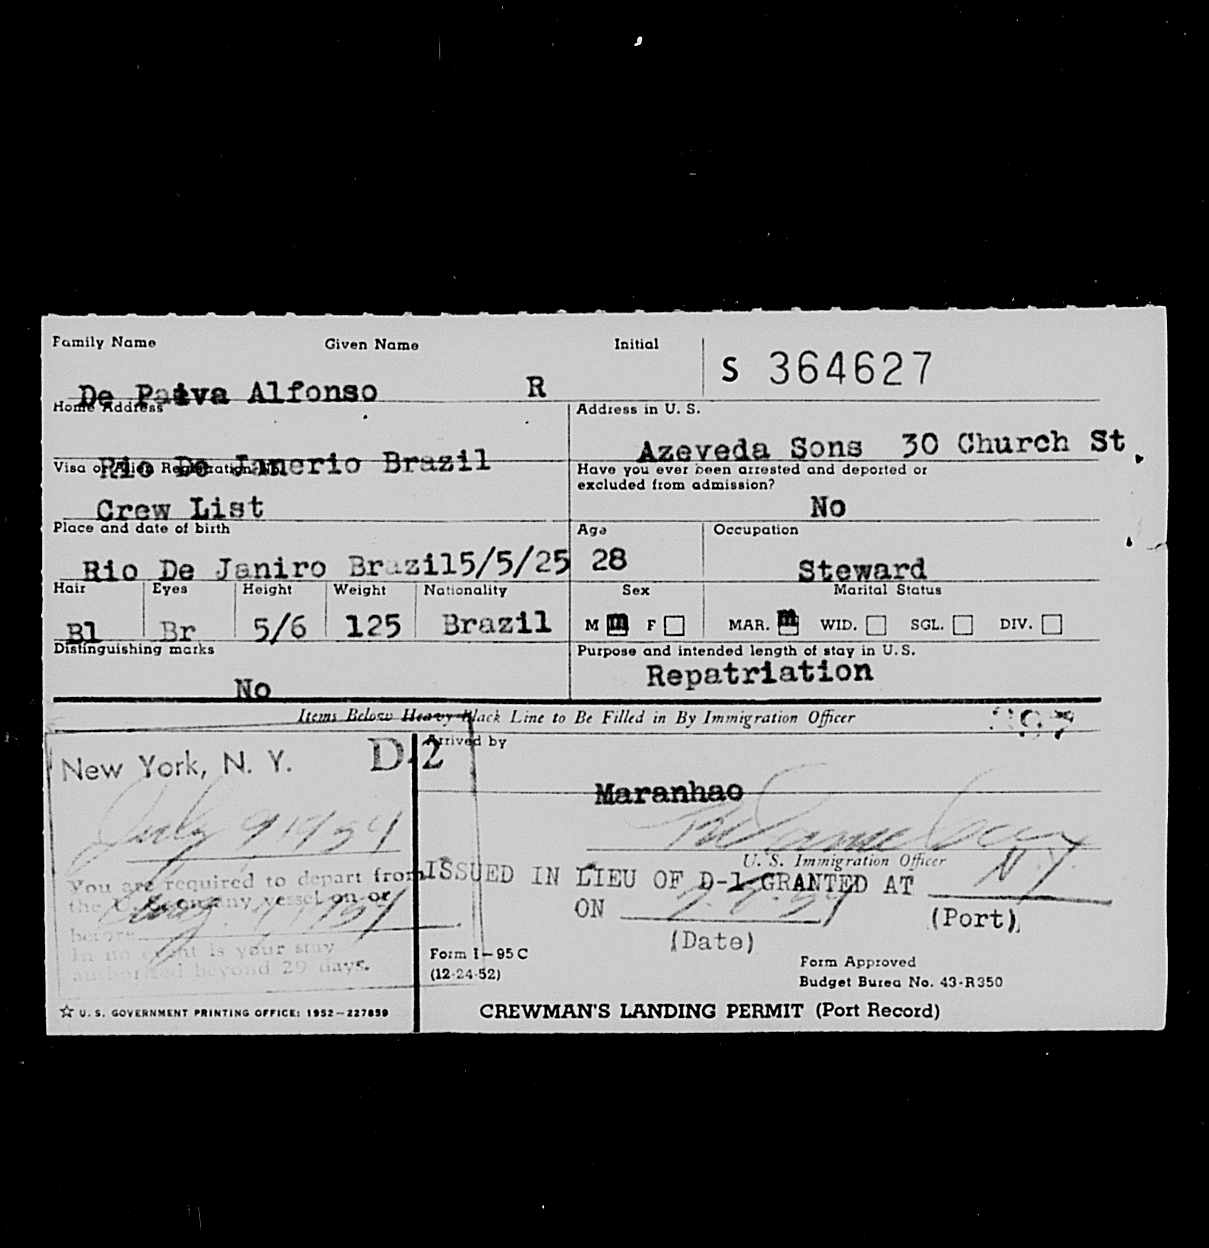 Family Name Given Name Initial
S 364627
De Paiva Alfonso R
Home Address Address in U. S.
Rio De Janerio Brazil Azeveda Sons 30 Church St.
Visa or Alien Registration No. Have you ever been arrested and deported or
excluded from admission?
Crew List No
Place and date of birth Age Occupation
Rio De Janiro Brazil5/5/25 28 Steward
Hair Eyes Height Weight Nationality Sex Marital Status
Bl Br 5/6 125 Brazil M m F MAR. m WID. SGL. DIV.
Distinguishing marks Purpose and intended length of stay in U. S.
No Repatriation
Items Below Heavy Black Line to Be Filled in By Immigration Officer
Arrived by
New York, N. Y. D-2
Maranhao
July 9 1954
U. S. Immigration Officer
You are required to depart from
the U. S. on any vessel on or
before
In no event is your stay
authorized beyond 29 days.
ISSUED IN LIEU OF D-1 GRANTED AT N.Y.
ON (Port)
(Date)
Form I-95 C
(12-24-52)
Form Approved
Budget Burea No. 43-R350
☆ U. S. GOVERNMENT PRINTING OFFICE: 1952-227859
CREWMAN'S LANDING PERMIT (Port Record)